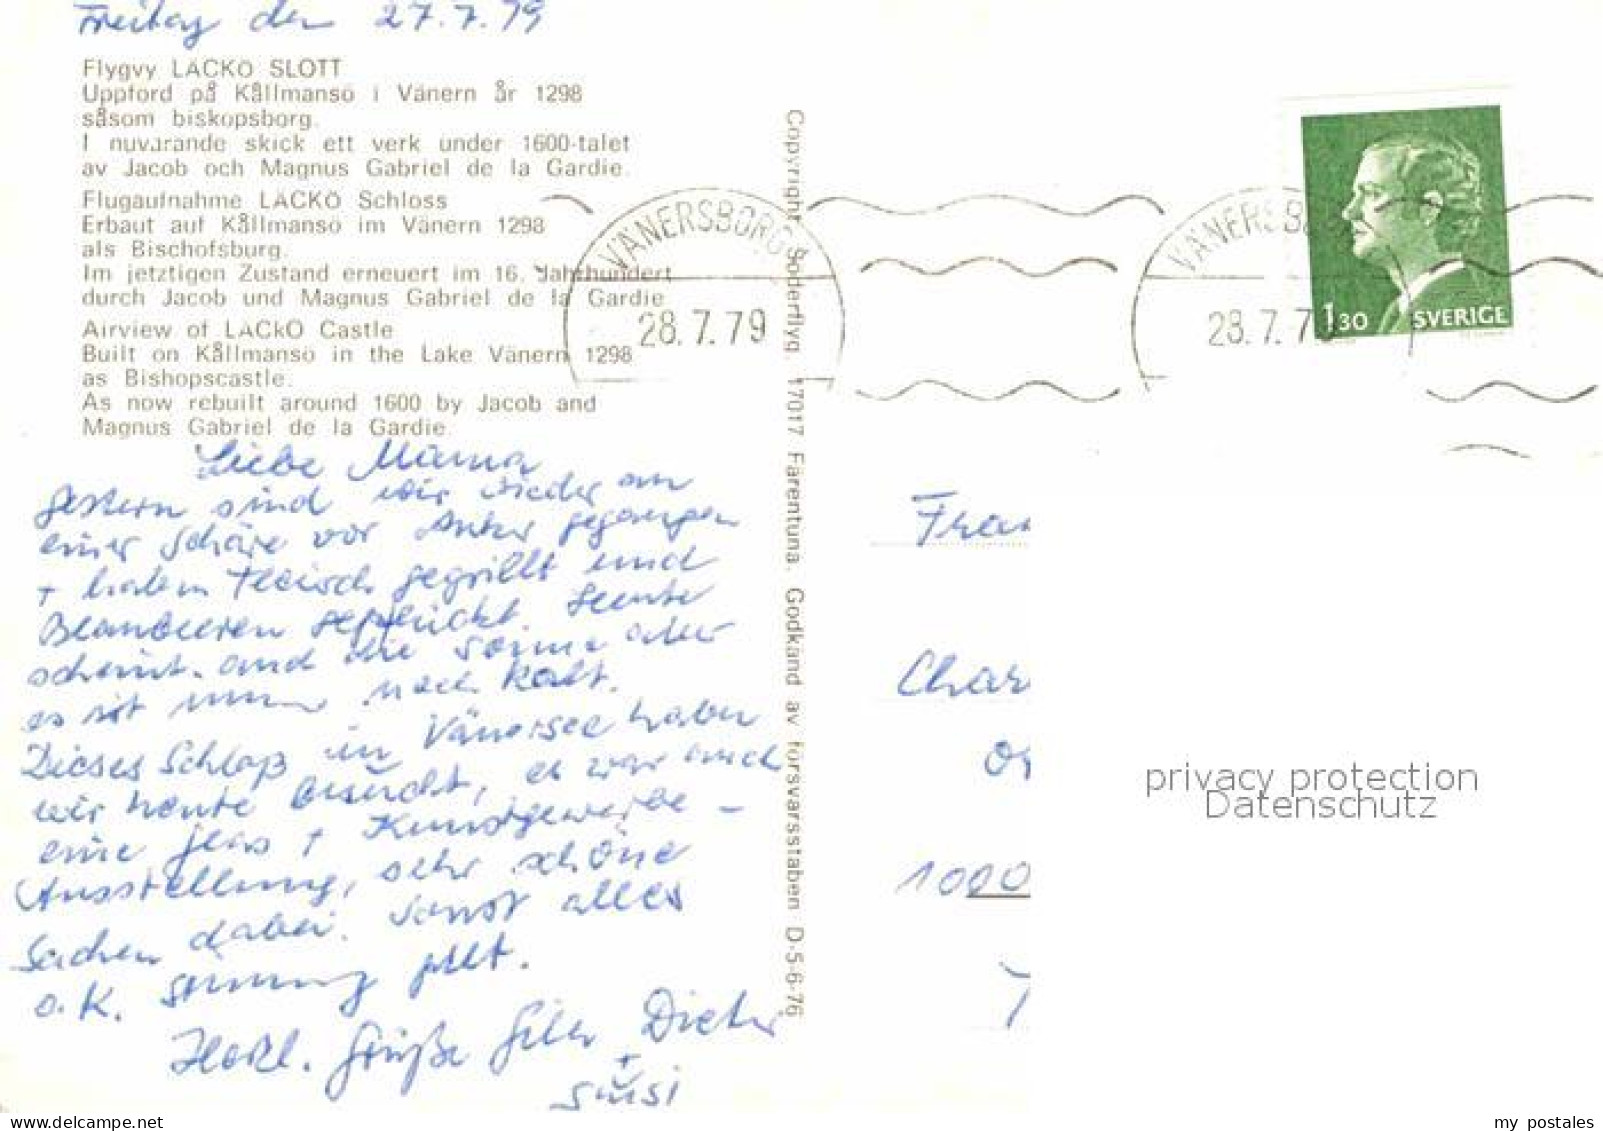 Freitag den 27.7.79
Flygvy LÄCKÖ SLOTT
Uppförd på Kållmansö i Vänern år 1298
såsom biskopsborg.
I nuvarande skick ett verk under 1600-talet
av Jacob och Magnus Gabriel de la Gardie.
Flugaufnahme LÄCKÖ Schloss
Erbaut auf Kållmansö im Vänern 1298
als Bischofsburg.
Im jetztigen Zustand erneuert im 16. Jahrhundert
durch Jacob und Magnus Gabriel de la Gardie
Airview of LÄCKÖ Castle
Built on Kållmansö in the Lake Vänern 1298
as Bishopscastle.
As now rebuilt around 1600 by Jacob and
Magnus Gabriel de la Gardie.
Liebe Mama
gestern sind wir wieder an
einer Schäre vor Anker gegangen
+ haben Fleisch gegrillt und
Blaubeeren gepflückt. Heute
scheint. und die Sonne aber
es ist immer noch kalt.
Dieses Schloß im Vänersee haben
wir heute besucht, es war auch
eine Glas + Kunstgewerbe -
Ausstellung, sehr schöne
Sachen dabei. Sonst alles
o.k. Stimmung gut.
Herzl. Grüße Dieter
+
Susi
Copyright Söderflyg. 17017 Färentuna. Godkänd av försvarsstaben D-5-6-76
VÄNERSBORG
28.7.79
VÄNERSB
28.7.7
1,30 SVERIGE
Frau
Char
Or
1000
privacy protection
Datenschutz
my postales